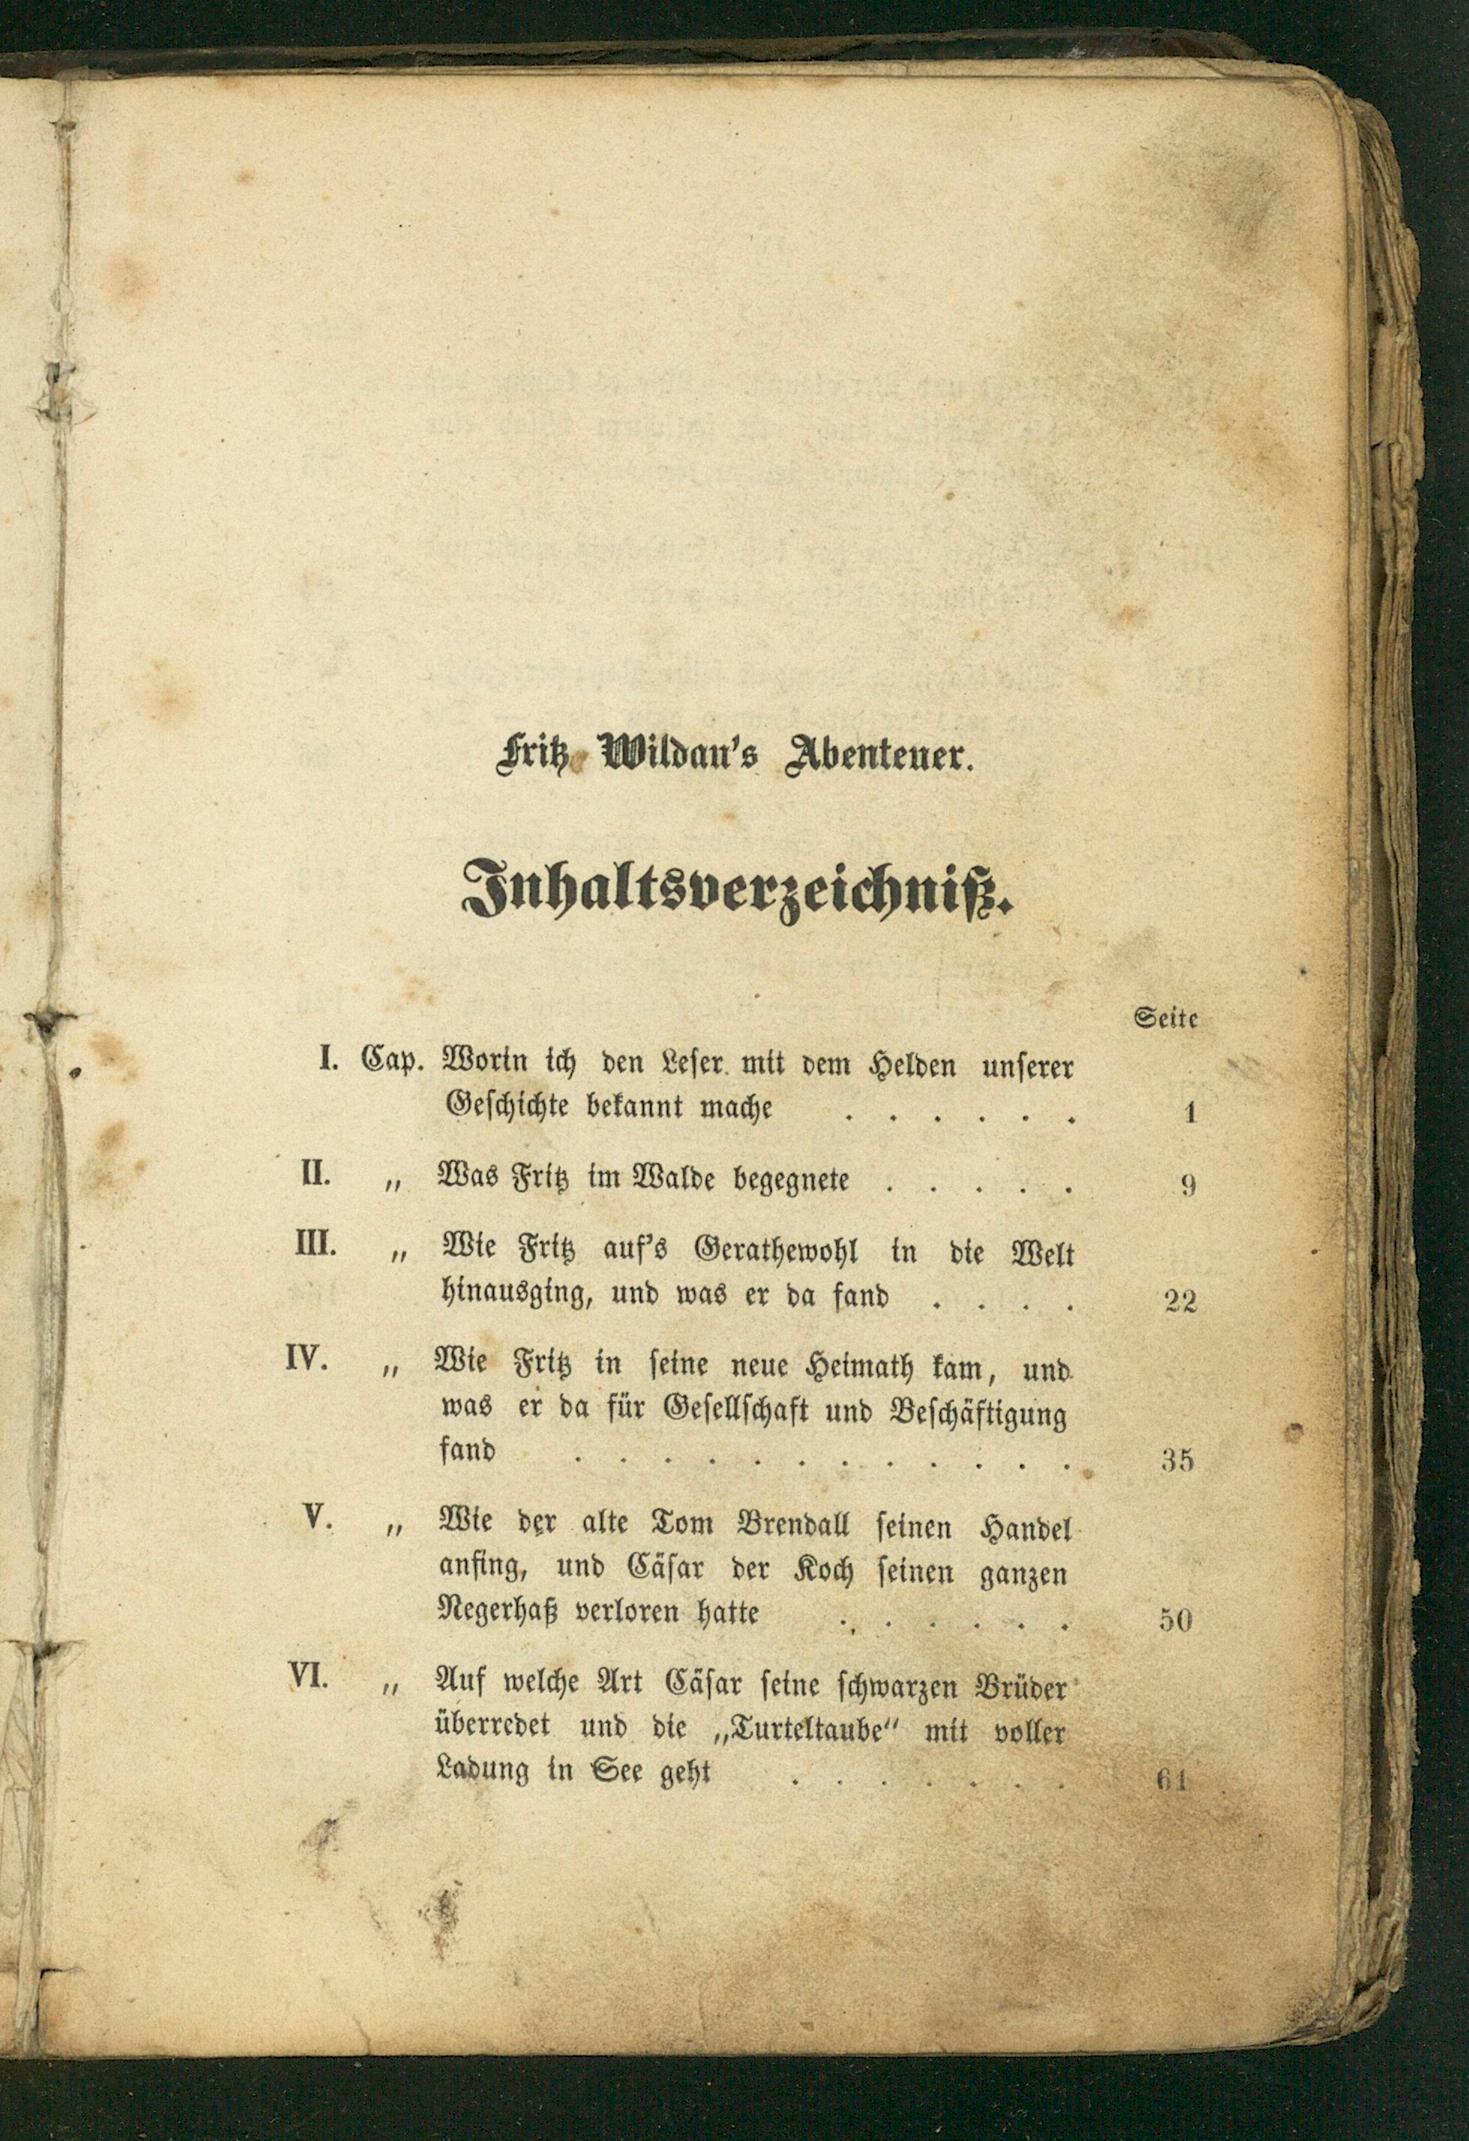 Fritz Wildau's Abenteuer.
Inhaltsverzeichniß.
Seite
I. Cap. Worin ich den Leser mit dem Helden unserer
Geschichte bekannt mache . . . . . . 1
II. „ Was Fritz im Walde begegnete . . . . . 9
III. „ Wie Fritz auf's Gerathewohl in die Welt
hinausging, und was er da fand . . . . 22
IV. „ Wie Fritz in seine neue Heimath kam, und
was er da für Gesellschaft und Beschäftigung
fand . . . . . . . . . . . . 35
V. „ Wie der alte Tom Brendall seinen Handel
anfing, und Cäsar der Koch seinen ganzen
Negerhaß verloren hatte . . . . . . 50
VI. „ Auf welche Art Cäsar seine schwarzen Brüder
überredet und die „Turteltaube“ mit voller
Ladung in See geht . . . . . . . 61